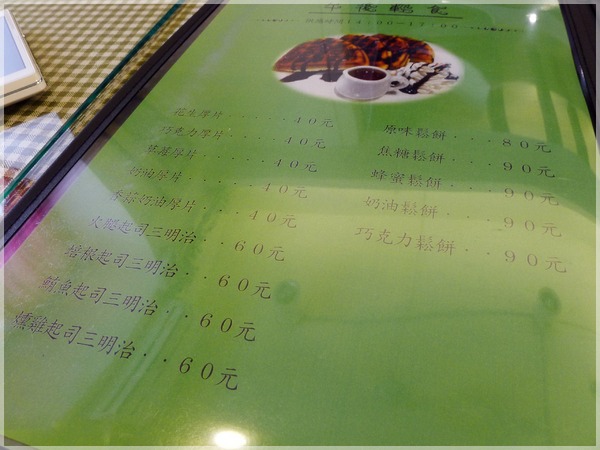 輕食
14:00—17:00
花生厚片‧‧‧‧40元
巧克力厚片‧‧‧40元
草莓厚片‧‧‧‧40元
奶油厚片‧‧‧‧40元
香蒜奶油厚片‧‧40元
火腿起司三明治‧‧60元
培根起司三明治‧‧60元
鮪魚起司三明治‧‧60元
燻雞起司三明治‧‧60元
原味鬆餅‧‧‧80元
焦糖鬆餅‧‧‧90元
蜂蜜鬆餅‧‧‧90元
奶油鬆餅‧‧‧90元
巧克力鬆餅‧‧90元